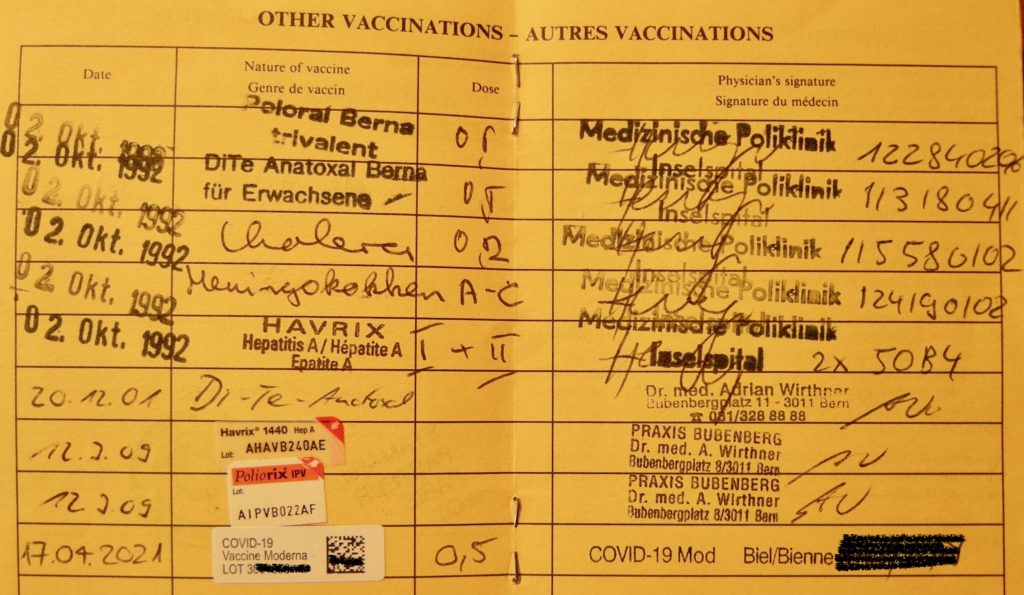 OTHER VACCINATIONS – AUTRES VACCINATIONS
Date
Nature of vaccine
Genre de vaccin
Dose
Physician's signature
Signature du médecin
02. Okt. 1992
Poloral Berna
trivalent
0,5
Medizinische Poliklinik
Inselspital
02. Okt. 1992
DiTe Anatoxal Berna
für Erwachsene
0,5
Medizinische Poliklinik
Inselspital
113180411
02. Okt. 1992
Cholera
0,2
Medizinische Poliklinik
Inselspital
115580102
02. Okt. 1992
Meningokokken A-C
Medizinische Poliklinik
124190102
02. Okt. 1992
HAVRIX
Hepatitis A / Hépatite A
Epatite A
I + II
Medizinische Poliklinik
Inselspital
2x 50B4
20.12.01
Di-Te-Anatoxal
Dr. med. Adrian Wirthner
Bubenbergplatz 11 - 3011 Bern
☎ 031/328 88 88
12.3.09
Havrix® 1440 Hep A
Lot: AHAVB240AE
PRAXIS BUBENBERG
Dr. med. A. Wirthner
Bubenbergplatz 8/3011 Bern
12.3.09
Poliorix IPV
Lot:
AIPVB022AF
PRAXIS BUBENBERG
Dr. med. A. Wirthner
Bubenbergplatz 8/3011 Bern
17.04.2021
COVID-19
Vaccine Moderna
LOT
0,5
COVID-19 Mod Biel/Bienne